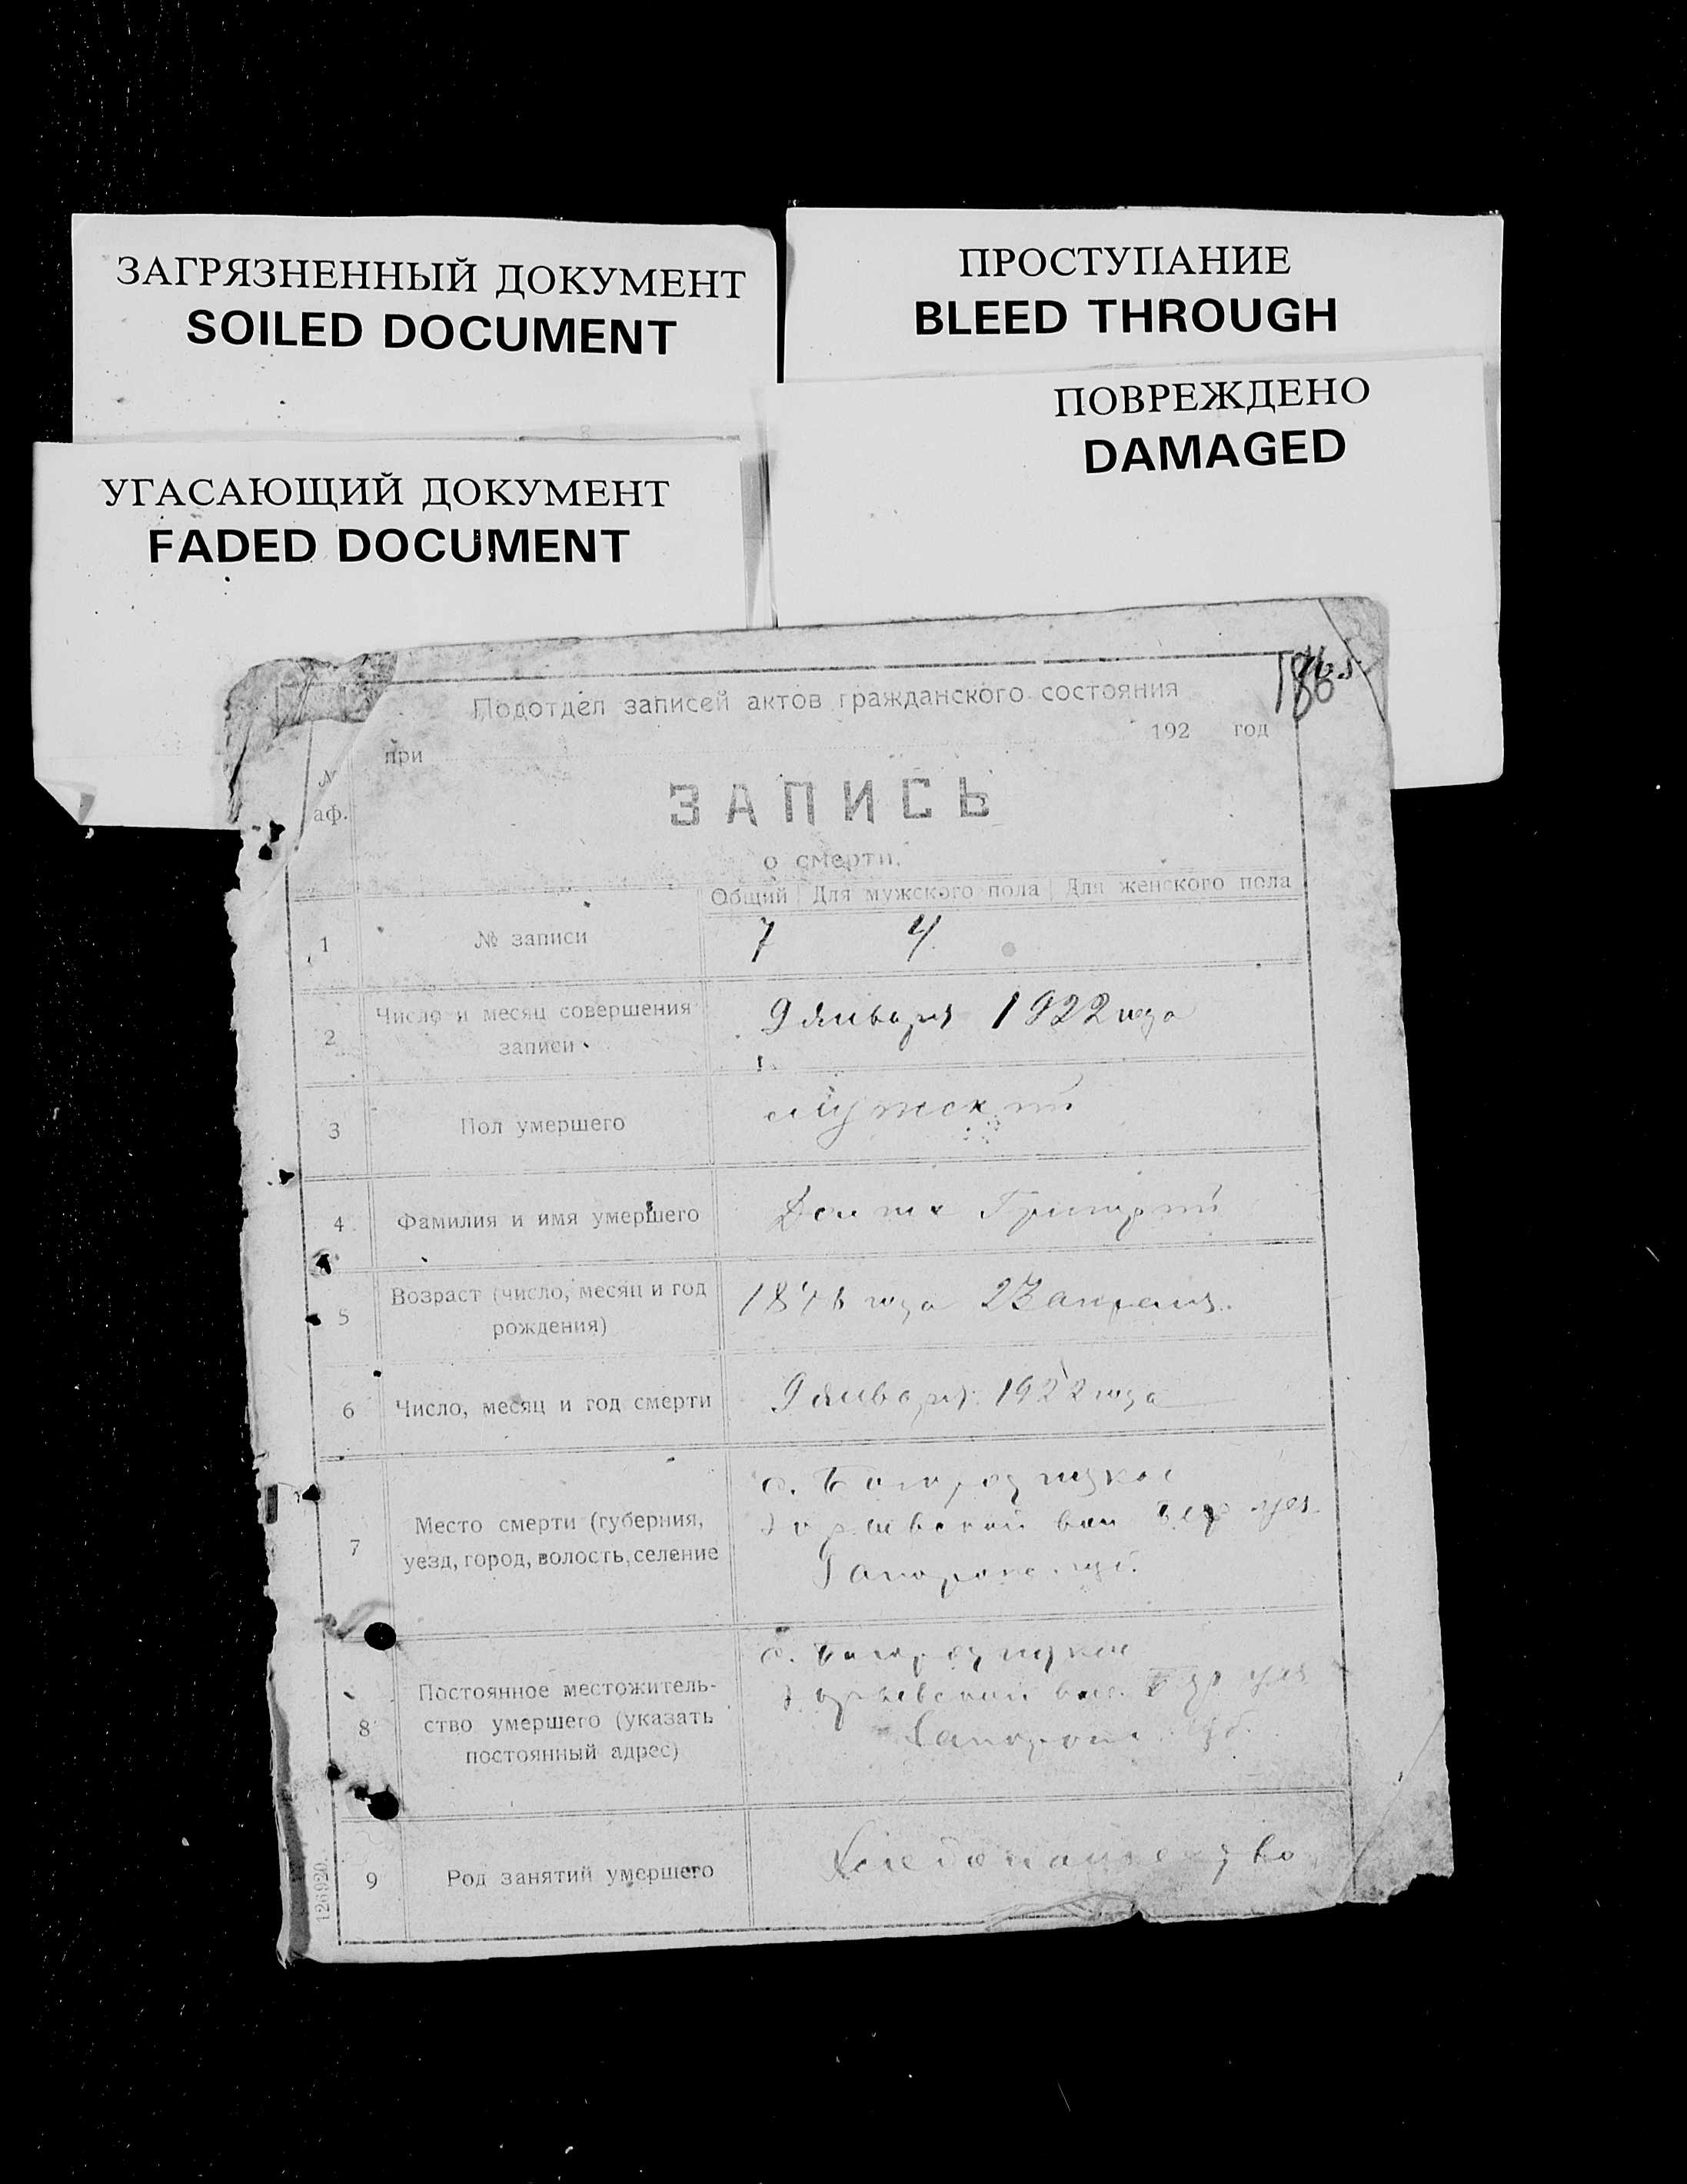 ЗАГРЯЗНЕННЫЙ ДОКУМЕНТ
SOILED DOCUMENT
ПРОСТУПАНИЕ
BLEED THROUGH
ПОВРЕЖДЕНО
DAMAGED
УГАСАЮЩИЙ ДОКУМЕНТ
FADED DOCUMENT
Подотдел записей актов гражданского состояния
при 192 год
№
аф.
ЗАПИСЬ
о смерти.
Общий Для мужского пола Для женского пола
1 № записи 7 4
2 Число и месяц совершения
записи
9 января 1922 года
3 Пол умершего Мужской
4 Фамилия и имя умершего Григорий
5 Возраст (число, месяц и год
рождения)
года 23 апреля.
6 Число, месяц и год смерти 9 января 1922 года
7 Место смерти (губерния,
уезд, город, волость, селение
с. Богородицкое
вол уез.
Запорож. губ.
8 Постоянное местожитель-
ство умершего (указать
постоянный адрес)
с. Богородицкое
вол. уез
Запорож. губ.
9 Род занятий умершего Хлебопашество
126920.